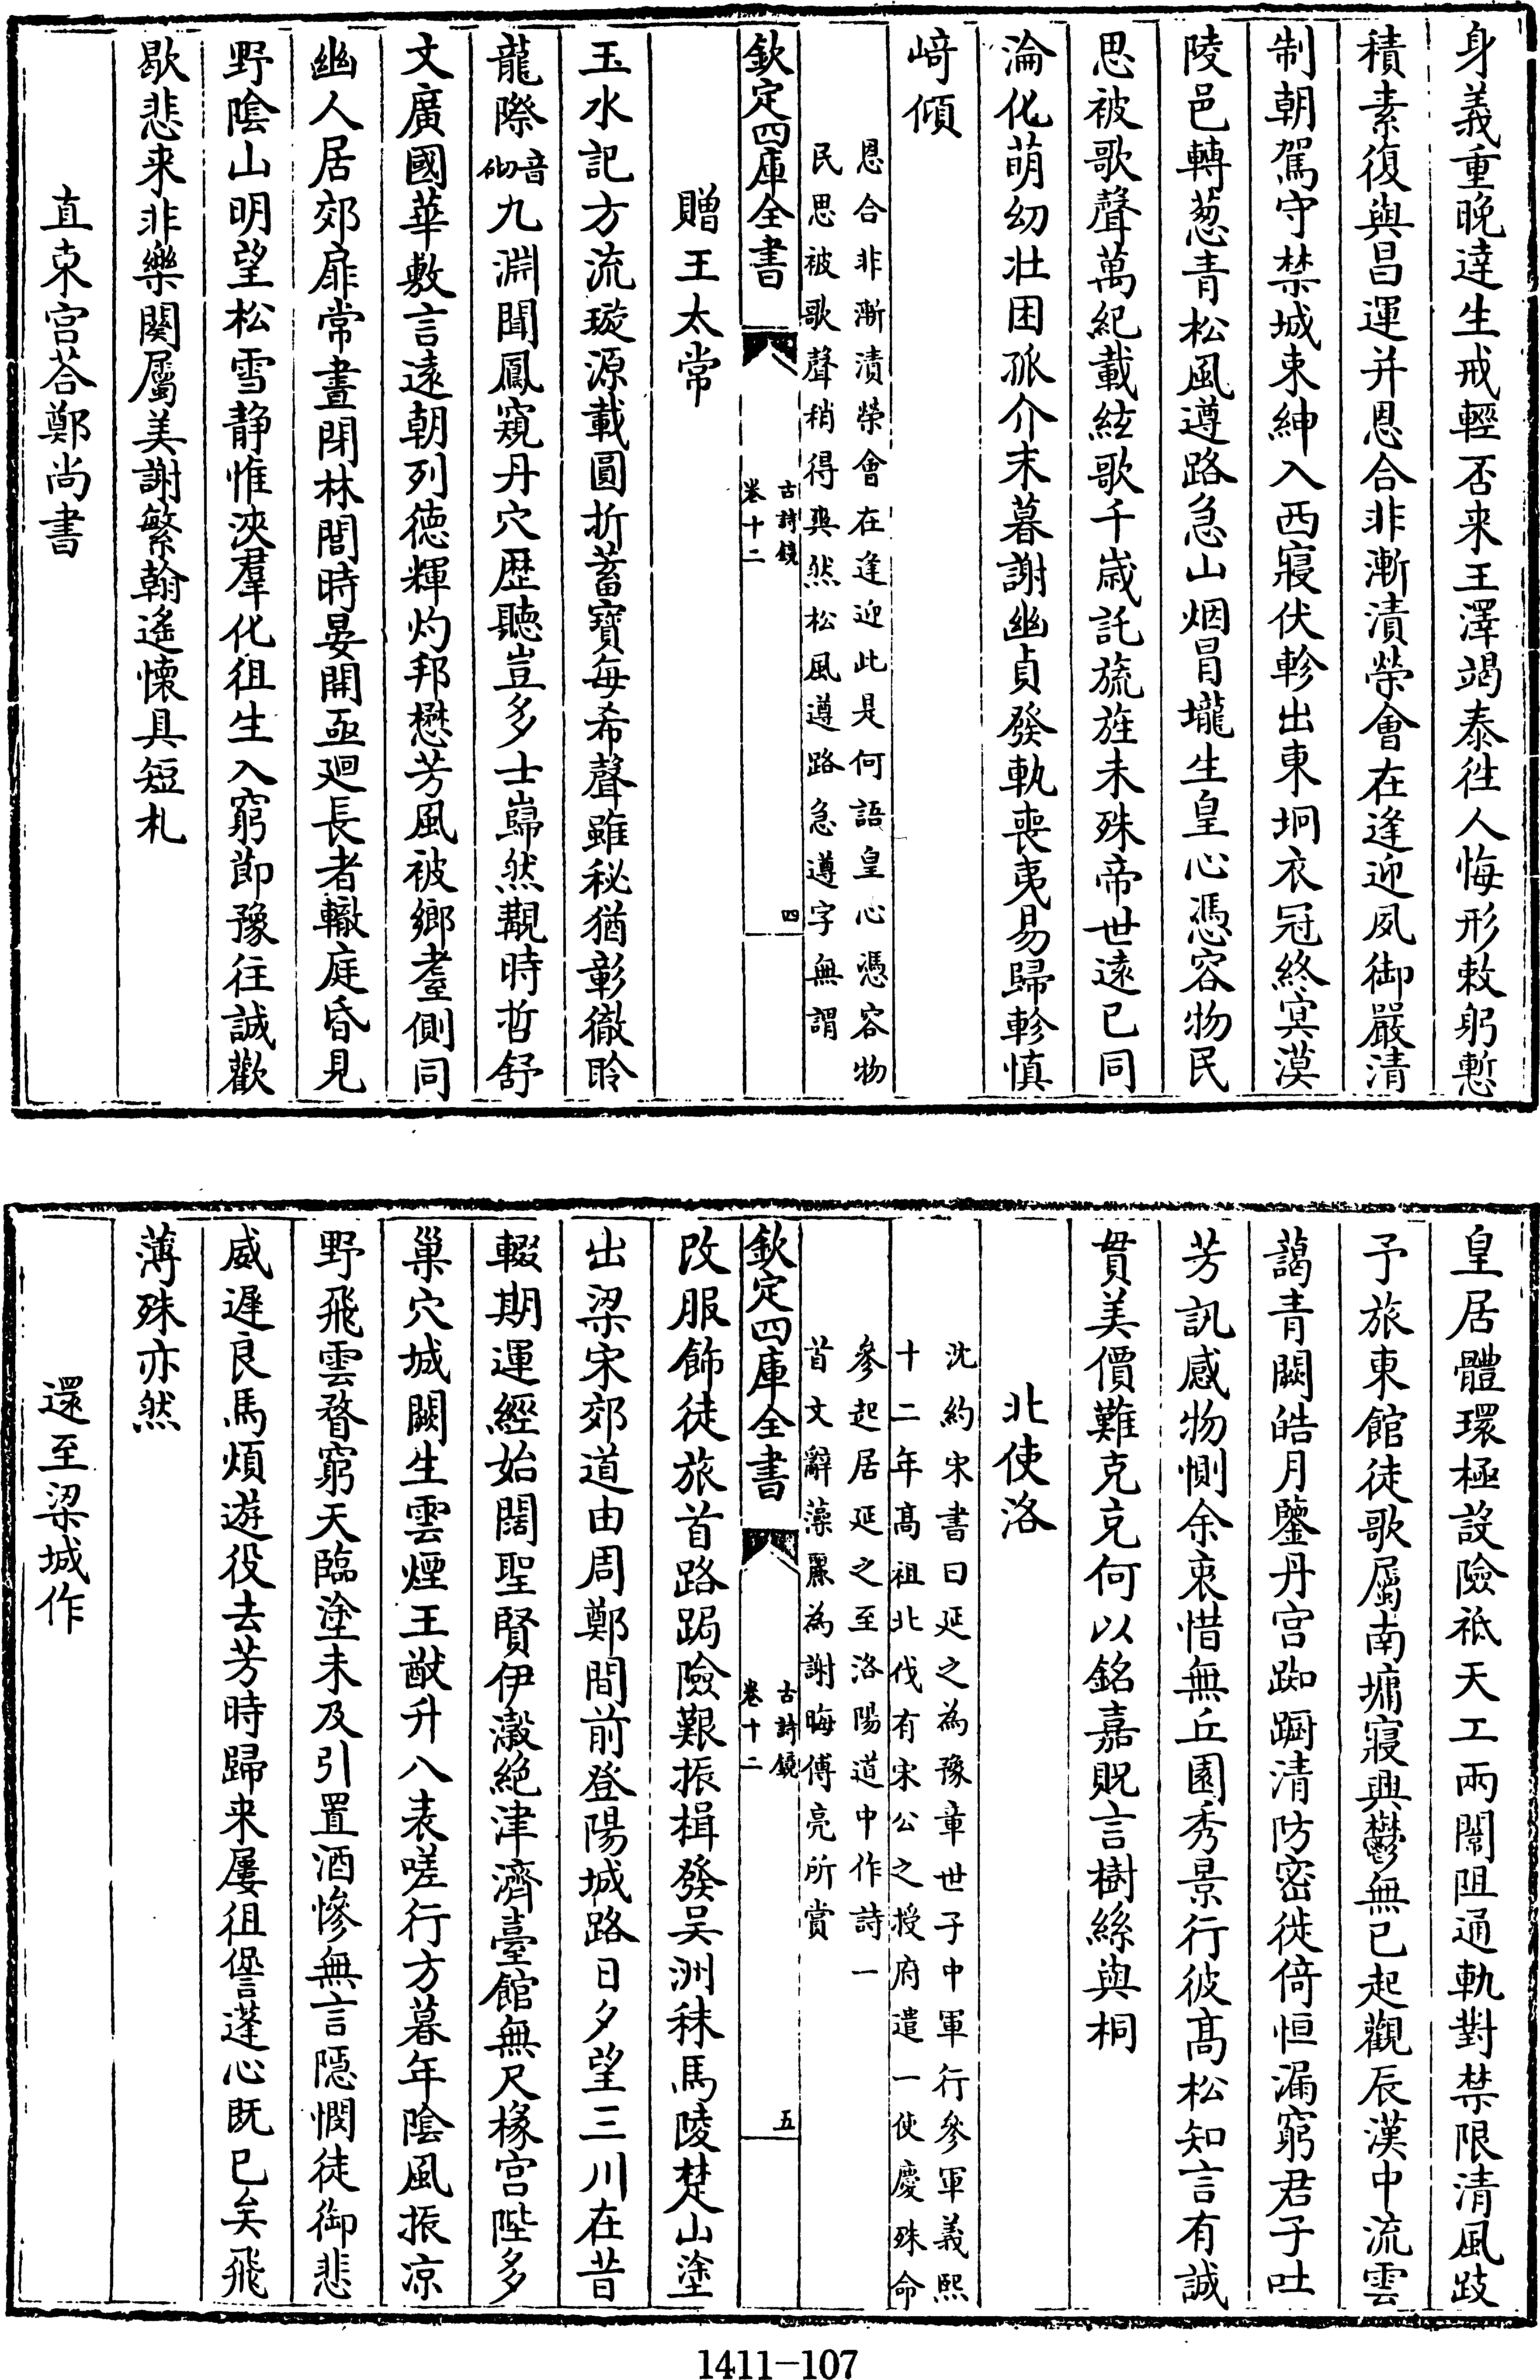 身義重晚達生戒輕否来王澤竭泰徃人悔形敕躬慙
積素復與昌運并恩合非漸漬榮會在逢迎夙御嚴清
制朝駕守禁城束紳入西寢伏軫出東坰衣冠終冥漠
陵邑轉葱青松風遵路急山烟冒壠生皇心憑容物民
思被歌聲萬紀載絃歌千歳託旒旌未殊帝世遠已同
淪化萌幼壯困孤介末暮謝幽貞發軌喪夷易歸軫慎
﨑傾
恩合非漸漬榮會在逢迎此是何語皇心憑容物
民思被歌聲稍得爽然松風遵路急遵字無謂
欽定四庫全書
古詩鏡
卷十二
四
贈王太常
玉水記方流璇源載圓折蓄寶每希聲雖秘猶彰徹聆
龍際音砌九淵聞鳳窺丹穴歴聽豈多士巋然覯時哲舒
文廣國華敷言遠朝列德輝灼邦懋芳風被鄉耋側同
幽人居郊扉常晝閉林閭時晏開亟迴長者轍庭昏見
野陰山明望松雪静惟浹羣化徂生入窮節豫往誠歡
歇悲来非樂闋屬美謝繁翰遙懷具短札
直東宫荅鄭尚書
皇居體環極設險祗天工兩闈阻通軌對禁限清風跂
予旅東館徒歌屬南墉寢興鬱無已起觀辰漢中流雲
藹青闕皓月鑒丹宫踟躕清防密徙倚恒漏窮君子吐
芳訊感物惻余衷惜無丘園秀景行彼髙松知言有誠
貫美價難克充何以銘嘉貺言樹絲與桐
北使洛
沈約宋書曰延之為豫章世子中軍行參軍義熙
十二年髙祖北伐有宋公之授府遣一使慶殊命
參起居延之至洛陽道中作詩一
首文辭藻麗為謝晦傅亮所賞
欽定四庫全書
古詩鏡
卷十二
五
改服飾徒旅首路跼險艱振楫發吴洲秣馬陵楚山塗
出梁宋郊道由周鄭間前登陽城路日夕望三川在昔
輟期運經始闊聖賢伊瀔絶津濟臺館無尺椽宫陛多
巢穴城闕生雲煙王猷升八表嗟行方暮年陰風振凉
野飛雲瞀窮天臨塗未及引置酒慘無言隱憫徒御悲
威遲良馬煩遊役去芳時歸来屢徂諐蓬心既已矣飛
薄殊亦然
還至梁城作
1411-107